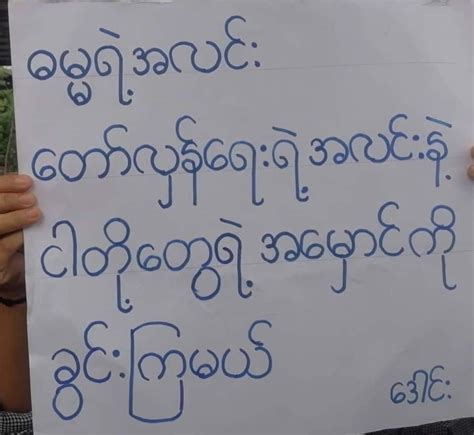 ဓမ္မရဲ့အလင်း
တော်လှန်ရေးရဲ့အလင်းနဲ့
ငါတို့တွေရဲ့ အမှောင်ကို
ခွင်းကြမယ်
ဒေါင်း